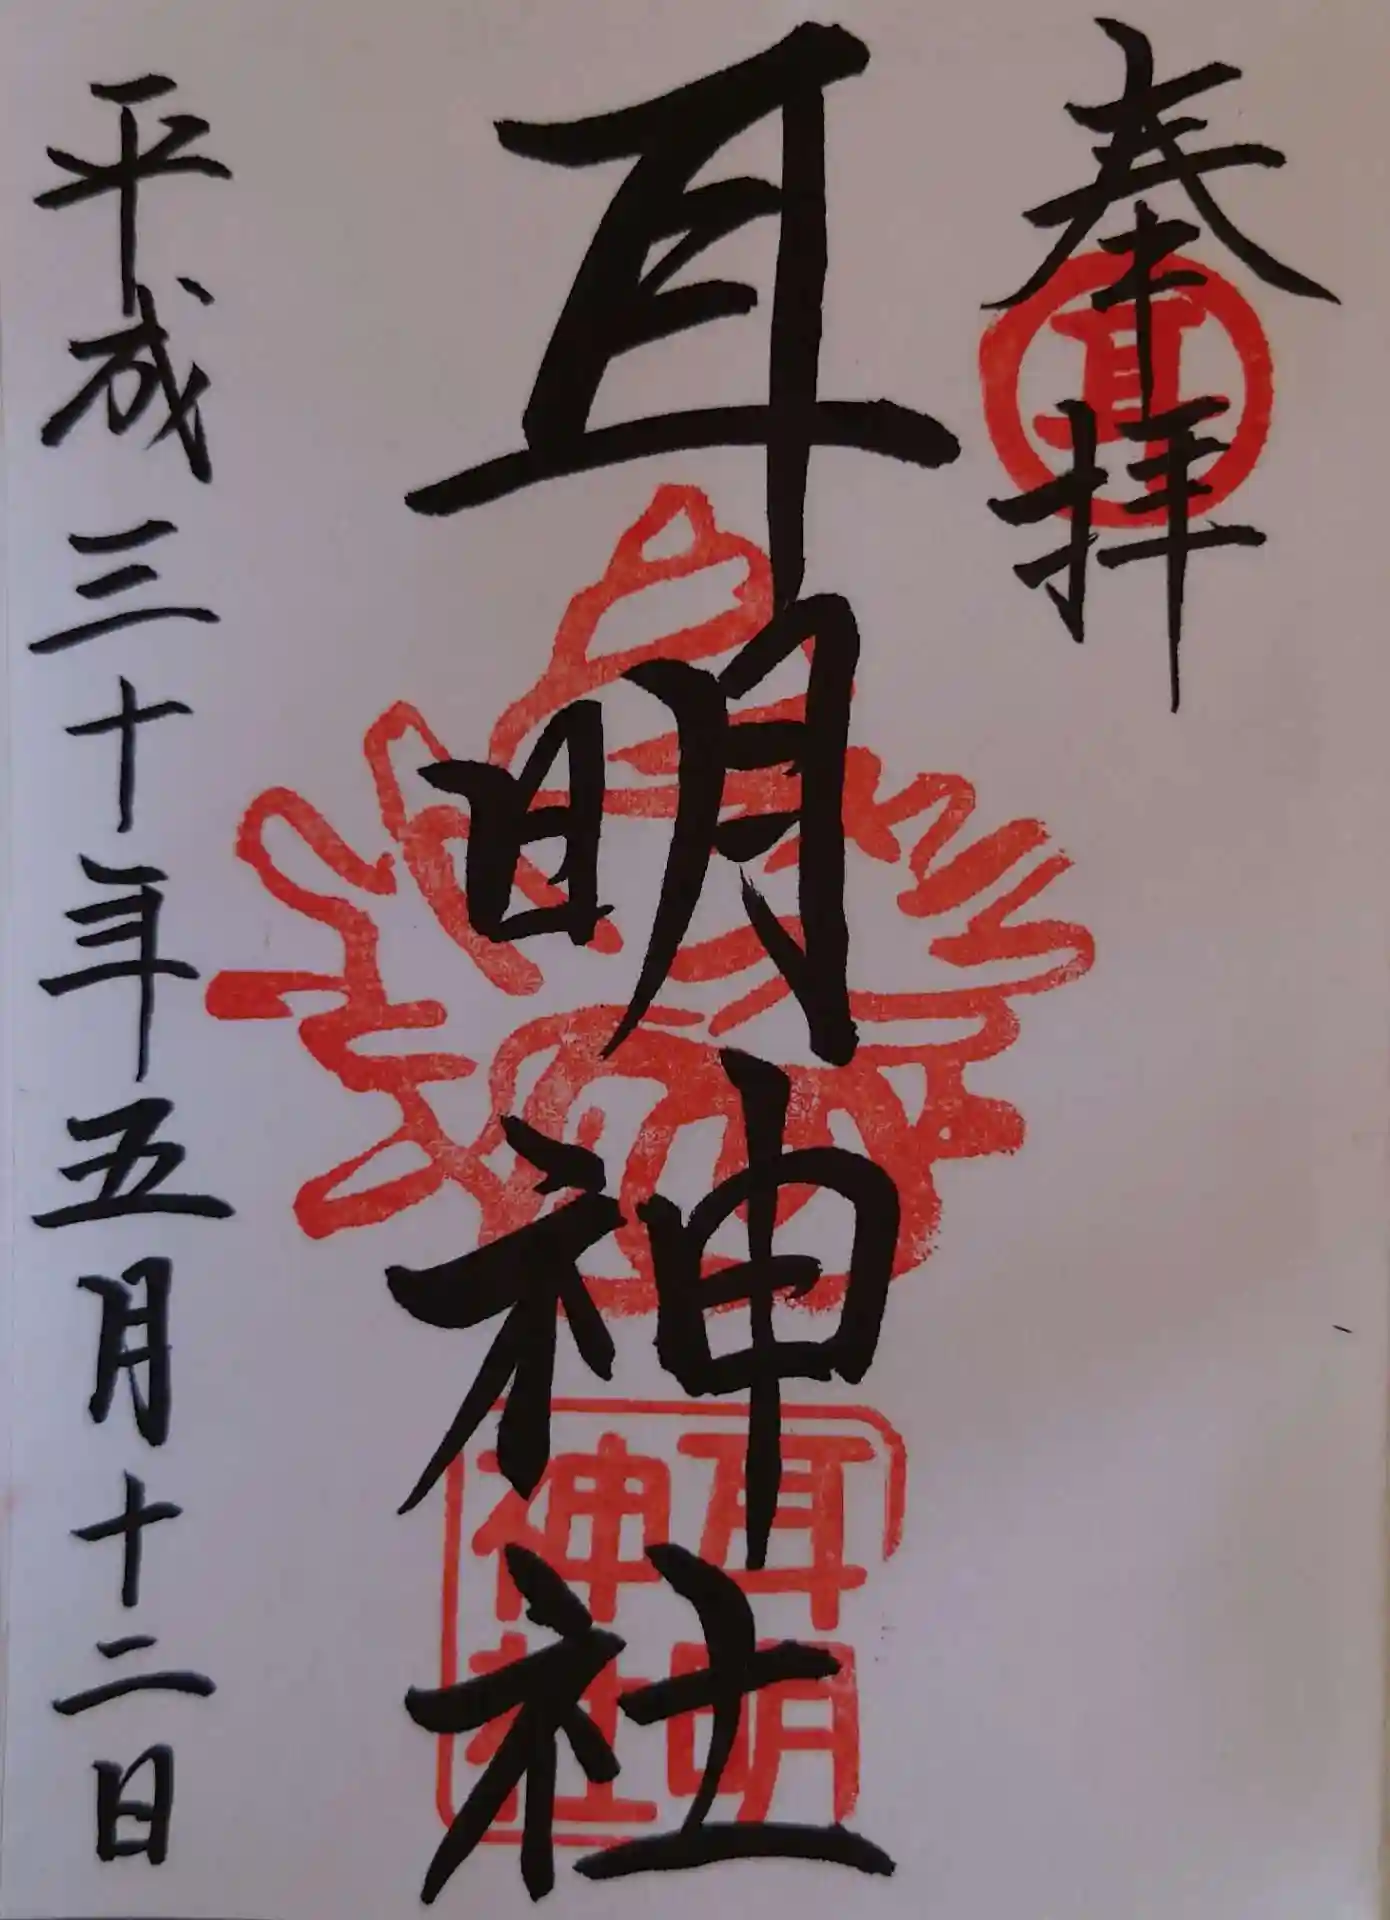 奉拝
耳
耳明神社
耳明
神社
平成三十年五月十二日